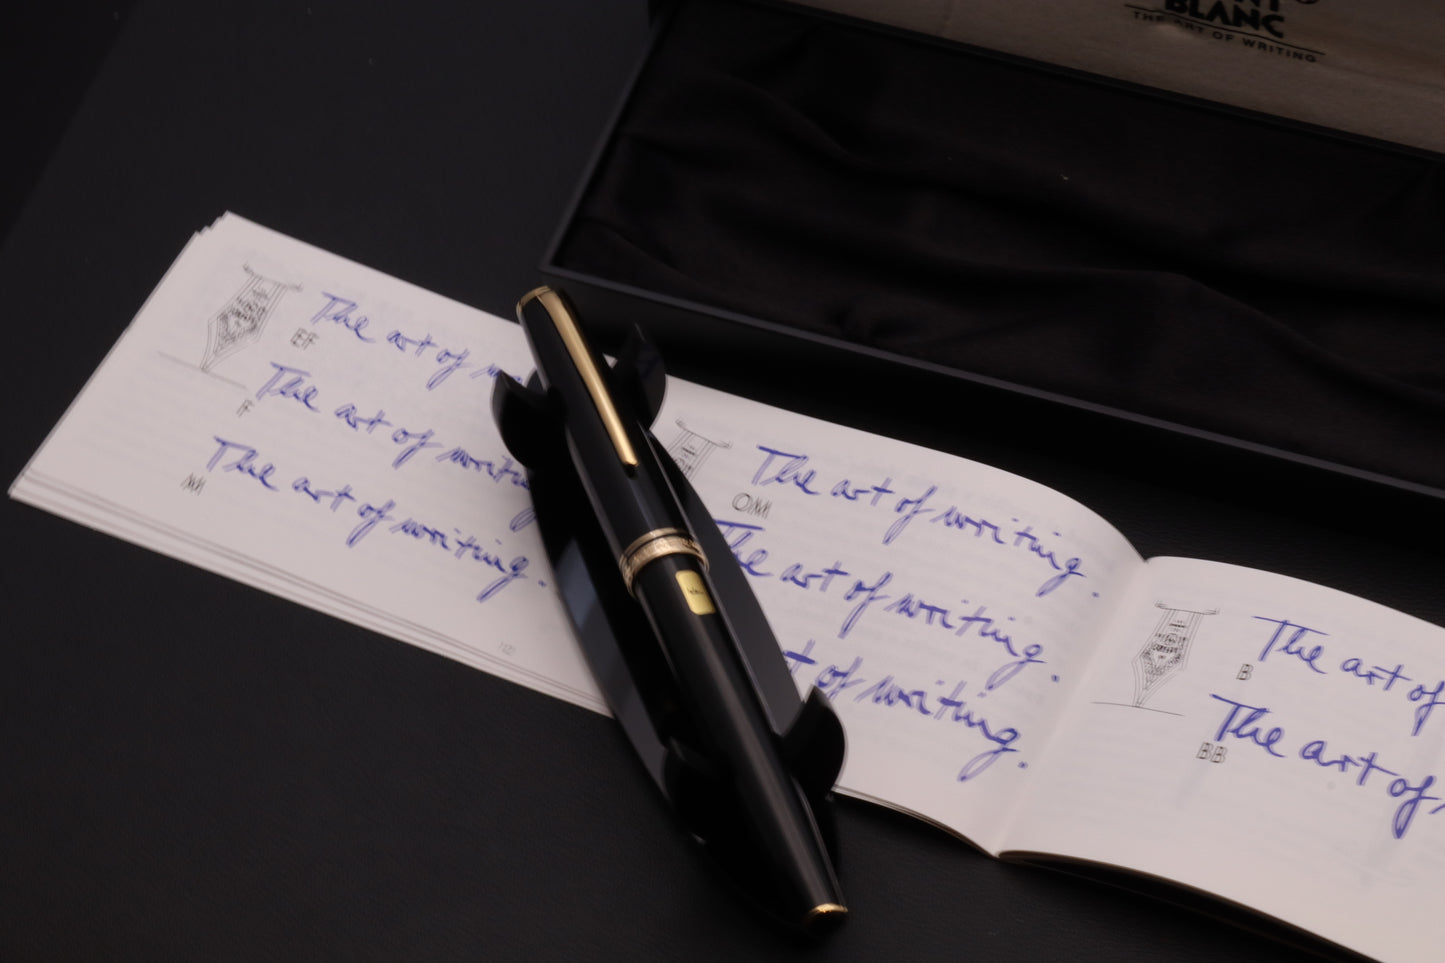 BLANC
THE ART OF WRITING
EF
The art of
F
The art of writing
M
The art of writing.
OM
The art of writing.
The art of writing.
art of writing.
B
The art of
BB
The art of